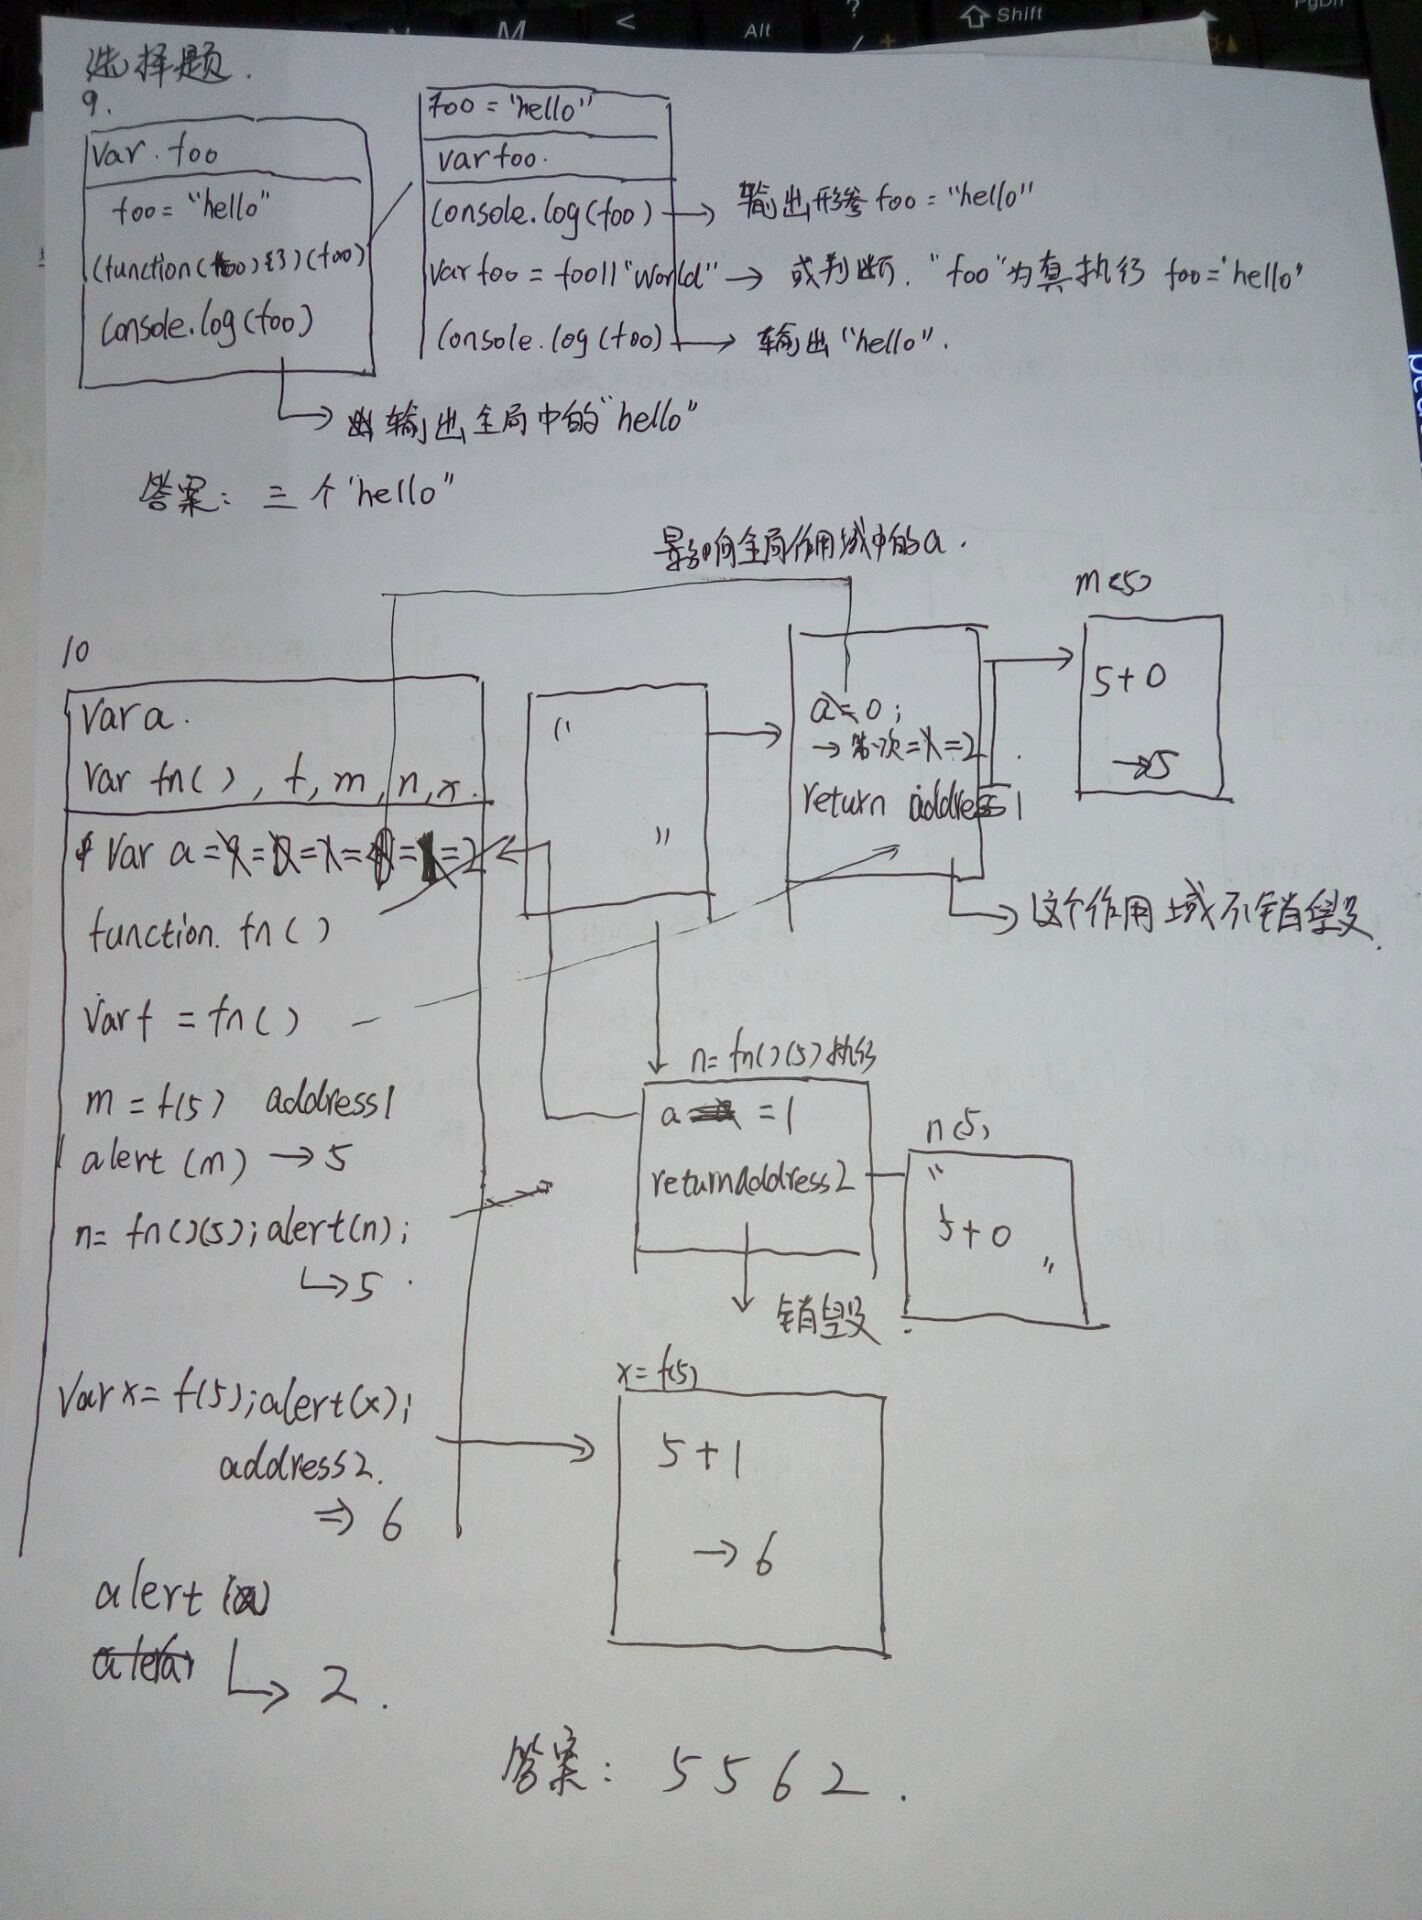 选择题.
9.
var. foo
foo = "hello"
(function(foo){})(foo)
console.log(foo)
输出全局中的"hello"
foo = "hello"
var foo.
console.log(foo) → 输出形参 foo = "hello"
var foo = foo||"world" → 或判断. "foo"为真执行 foo="hello"
console.log(foo) → 输出"hello".
答案: 三个"hello"
影响全局作用域中的a.
10
var a.
var fn(), f, m, n, x.
var a = = = = = = 2
function. fn()
var f = fn()
m = f(5) address1
alert (m) → 5
n= fn()(5);alert(n);
→5.
var x= f(5);alert(x);
address2.
⇒ 6
alert (a)
→ 2.
"
"
a=0;
→ 第一次=1=2
return address1
这个作用域不销毁.
m(5)
5+0
→5
n= fn()(5)执行
a = 1
return address2
销毁.
n(5)
"
5+0
"
x= f(5)
5+1
→6
答案: 5 5 6 2 .
M
<
Alt
?
/
Shift
PgDn